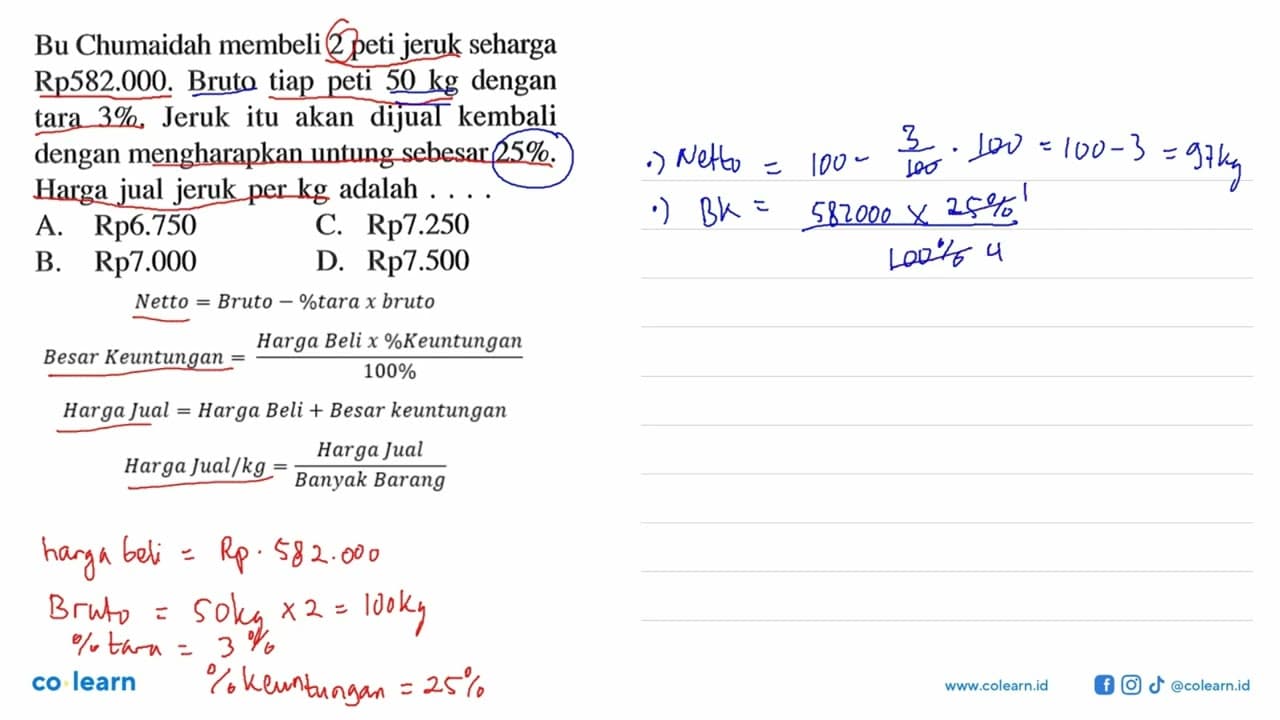 Bu Chumaidah membeli 2 peti jeruk seharga
Rp582.000. Bruto tiap peti 50 kg dengan
tara 3%. Jeruk itu akan dijual kembali
dengan mengharapkan untung sebesar 25%.
Harga jual jeruk per kg adalah . . . .
A. Rp6.750 C. Rp7.250
B. Rp7.000 D. Rp7.500
Netto = Bruto − %tara x bruto
Besar Keuntungan = Harga Beli x %Keuntungan / 100%
Harga Jual = Harga Beli + Besar keuntungan
Harga Jual/kg = Harga Jual / Banyak Barang
harga beli = Rp. 582.000
Bruto = 50kg x 2 = 100kg
% tara = 3%
% keuntungan = 25%
•) Netto = 100 - 3/100 . 100 = 100 - 3 = 97kg
•) BK = 582000 x 25% 1 / 100% 4
co learn
www.colearn.id @colearn.id